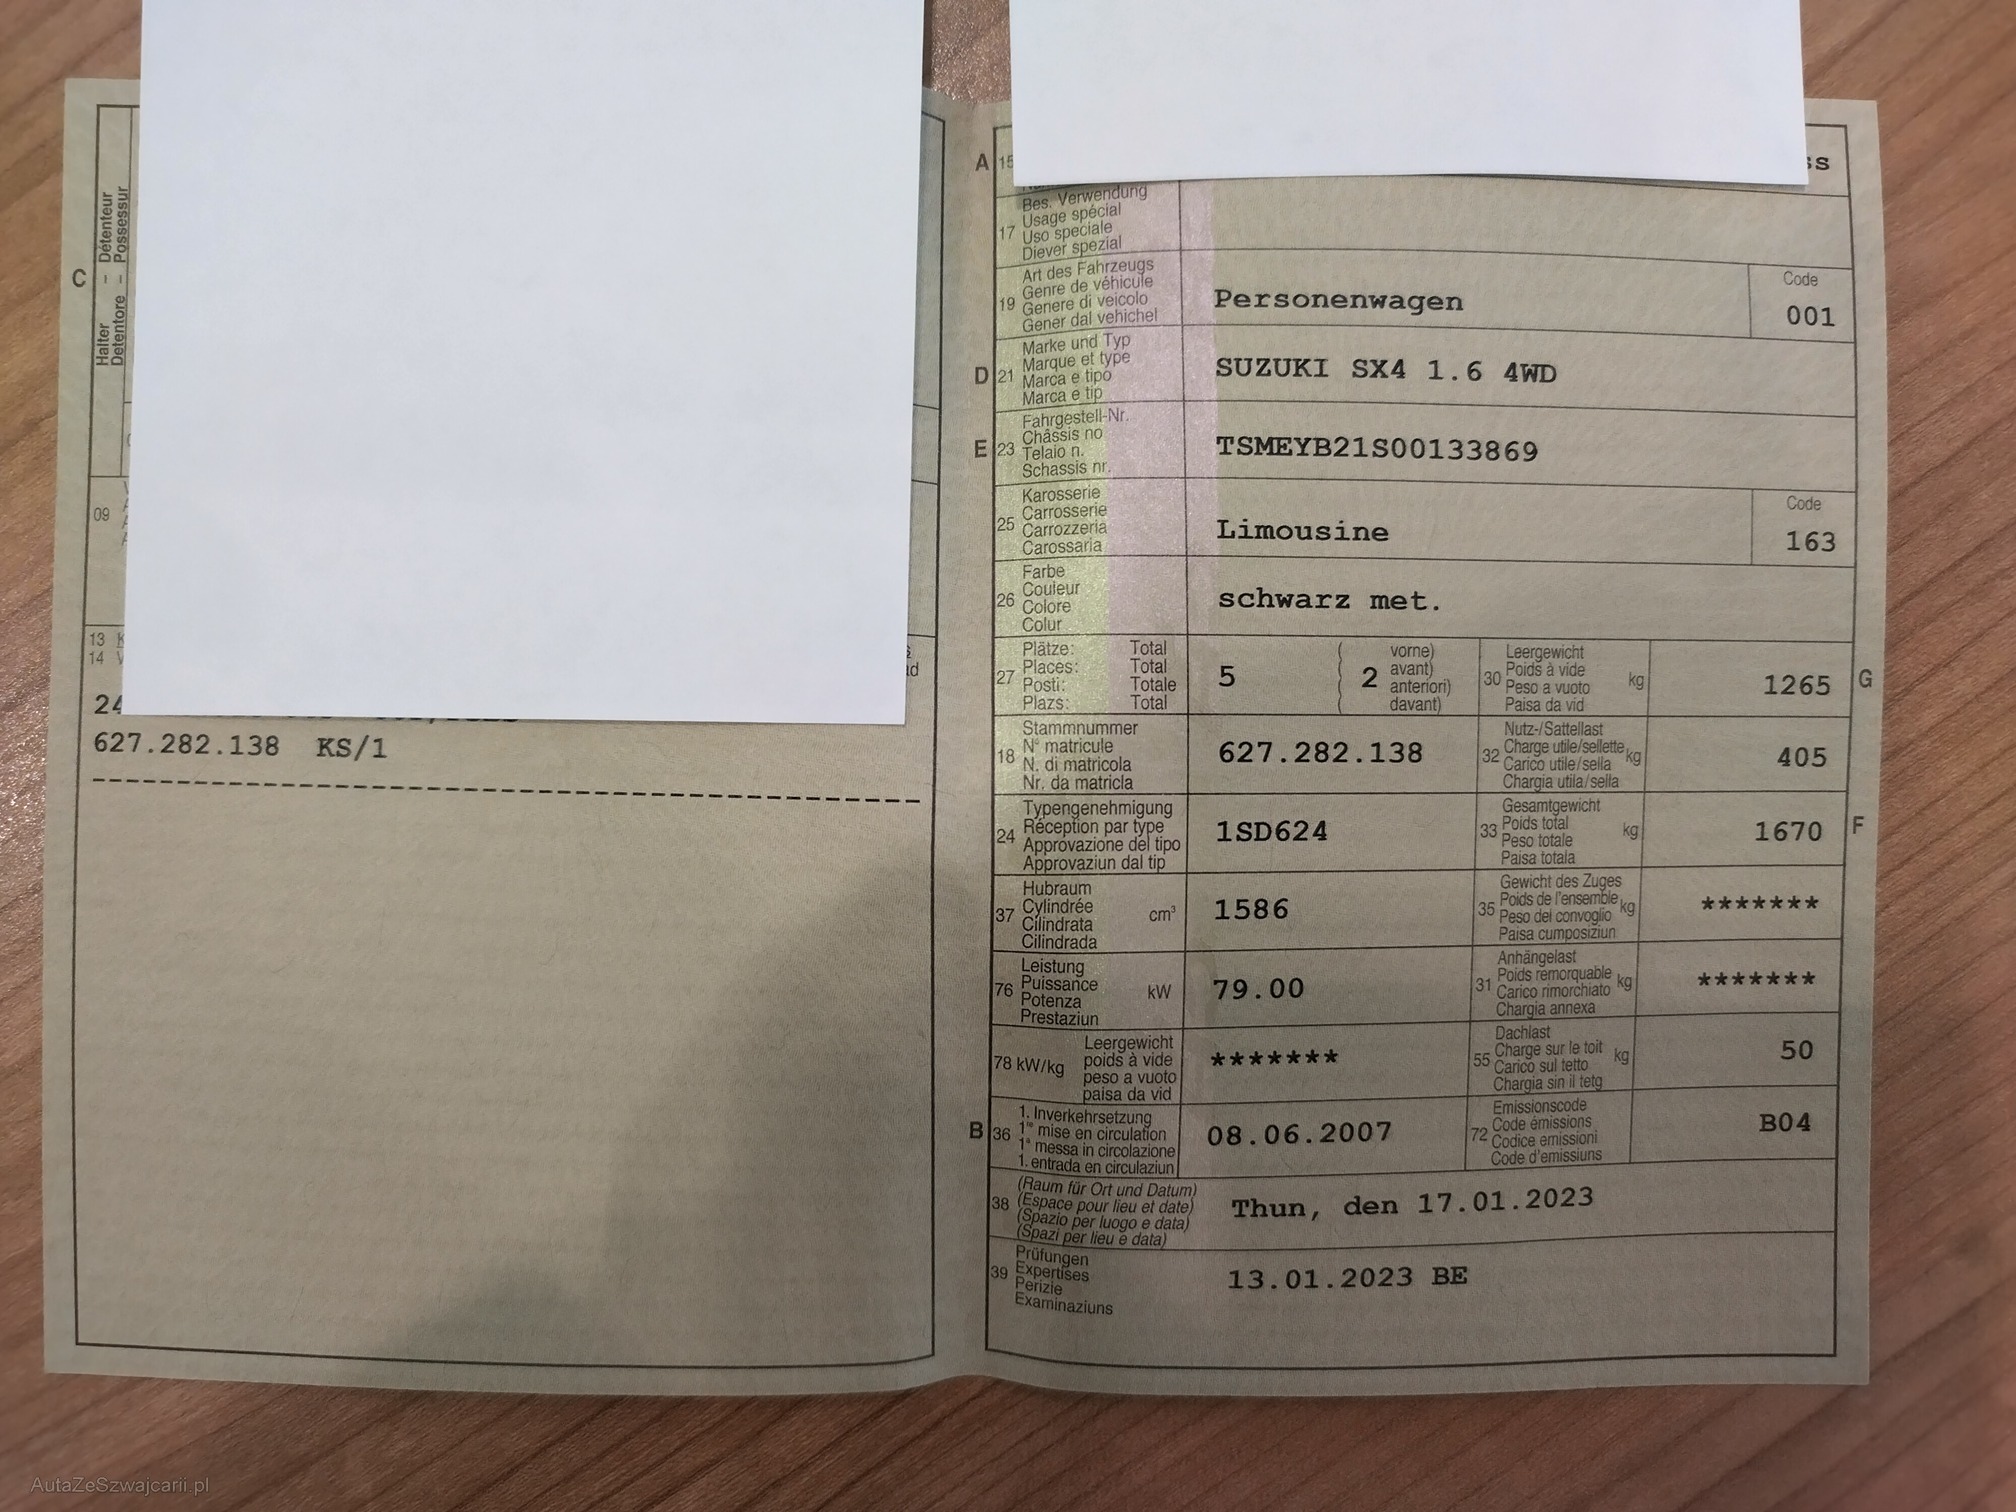 C
Halter - Détenteur
Detentore - Possessur
09
13
14
24
627.282.138 KS/1
A 15 ss
17 Bes. Verwendung
Usage spécial
Uso speciale
Diever spezial
19 Art des Fahrzeugs
Genre de véhicule
Genere di veicolo
Gener dal vehichel
Personenwagen
Code
001
D 21 Marke und Typ
Marque et type
Marca e tipo
Marca e tip
SUZUKI SX4 1.6 4WD
E 23 Fahrgestell-Nr.
Châssis no
Telaio n.
Schassis nr.
TSMEYB21S00133869
25 Karosserie
Carrosserie
Carrozzeria
Carossaria
Limousine
Code
163
26 Farbe
Couleur
Colore
Colur
schwarz met.
27 Plätze: Total
Places: Total
Posti: Totale
Plazs: Total
5
( vorne)
( 2 avant)
( anteriori)
( davant)
30 Leergewicht
Poids à vide kg
Peso a vuoto
Paisa da vid
1265 G
18 Stammnummer
N° matricule
N. di matricola
Nr. da matricla
627.282.138
32 Nutz-/Sattellast
Charge utile/sellette kg
Carico utile/sella
Chargia utila/sella
405
24 Typengenehmigung
Réception par type
Approvazione del tipo
Approvaziun dal tip
1SD624
33 Gesamtgewicht
Poids total kg
Peso totale
Paisa totala
1670 F
37 Hubraum
Cylindrée cm³
Cilindrata
Cilindrada
1586
35 Gewicht des Zuges
Poids de l'ensemble kg
Peso del convoglio
Paisa cumposiziun
*******
76 Leistung
Puissance kW
Potenza
Prestaziun
79.00
31 Anhängelast
Poids remorquable kg
Carico rimorchiato
Chargia annexa
*******
78 kW/kg Leergewicht
poids à vide
peso a vuoto
paisa da vid
*******
55 Dachlast
Charge sur le toit kg
Carico sul tetto
Chargia sin il tetg
50
B 36 1. Inverkehrsetzung
1re mise en circulation
1a messa in circolazione
1. entrada en circulaziun
08.06.2007
72 Emissionscode
Code émissions
Codice emissioni
Code d'emissiuns
B04
38 (Raum für Ort und Datum)
(Espace pour lieu et date)
(Spazio per luogo e data)
(Spazi per lieu e data)
Thun, den 17.01.2023
39 Prüfungen
Expertises
Perizie
Examinaziuns
13.01.2023 BE
AutaZeSzwajcarii.pl